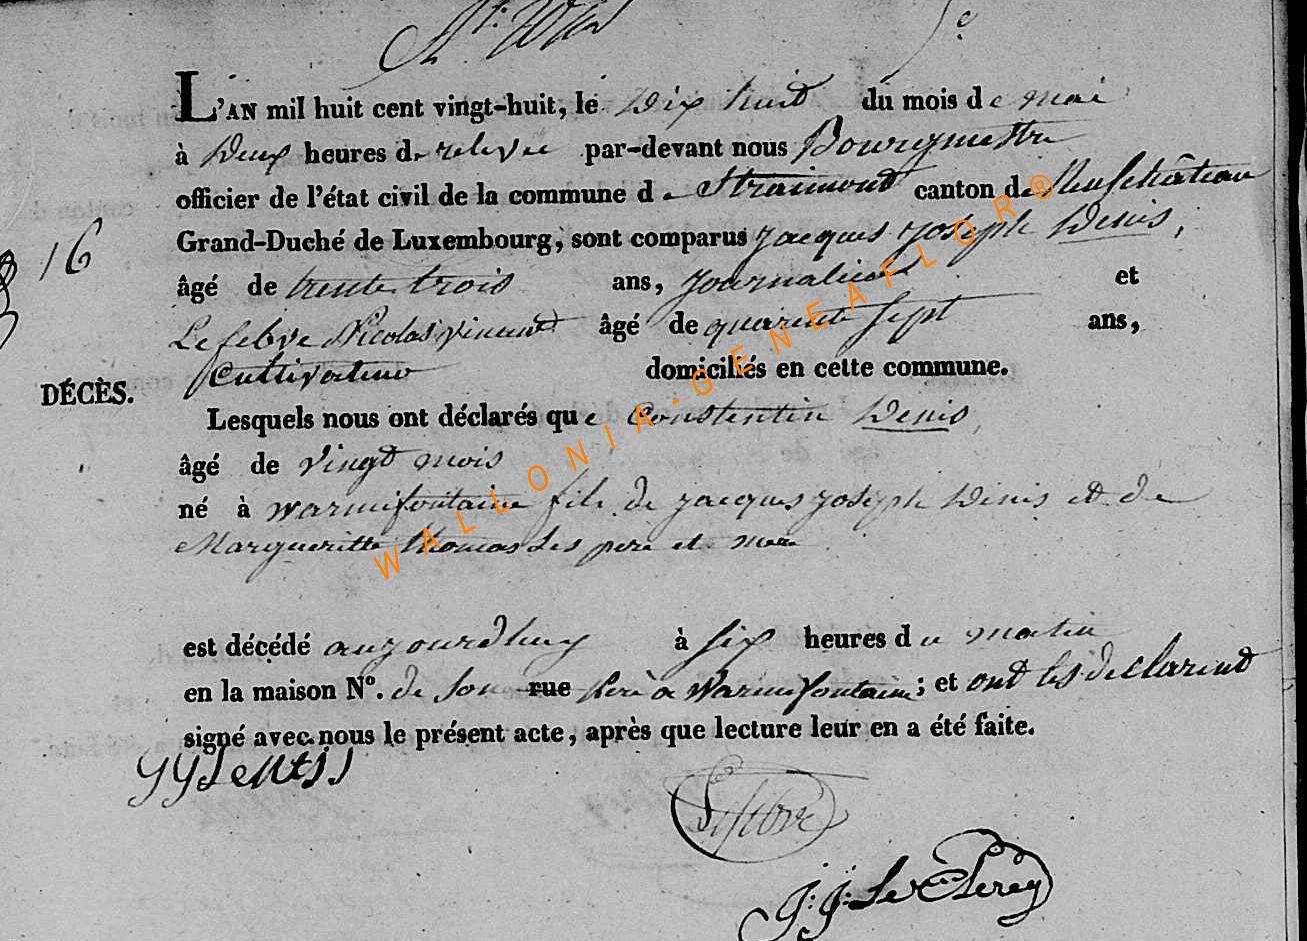 L'AN mil huit cent vingt-huit, le Dix huit du mois de mai
à Deux heures de relevée par-devant nous Bourgmestre
officier de l'état civil de la commune de Straimont canton de Neufchâteau
Grand-Duché de Luxembourg, sont comparus Jacques Joseph Denis,
16
âgé de trente trois ans, Journalier et
Lefebvre Nicolas vincent âgé de quarente sept ans,
Cultivateur domiciliés en cette commune.
DÉCÈS.
Lesquels nous ont déclarés que Constentin Denis,
âgé de vingt mois
né à warmifontaine fils de jacques joseph Denis et de
Margueritte thomas Les pere et mere
est décédé aujourdhuy à six heures du matin
en la maison N°. de son rue Perè a Warmifontaine; et ont les declarent
signé avec nous le présent acte, après que lecture leur en a été faite.
Lefebvre
J: J: Le Clerey
WALLONIA-GENEAFLOR®